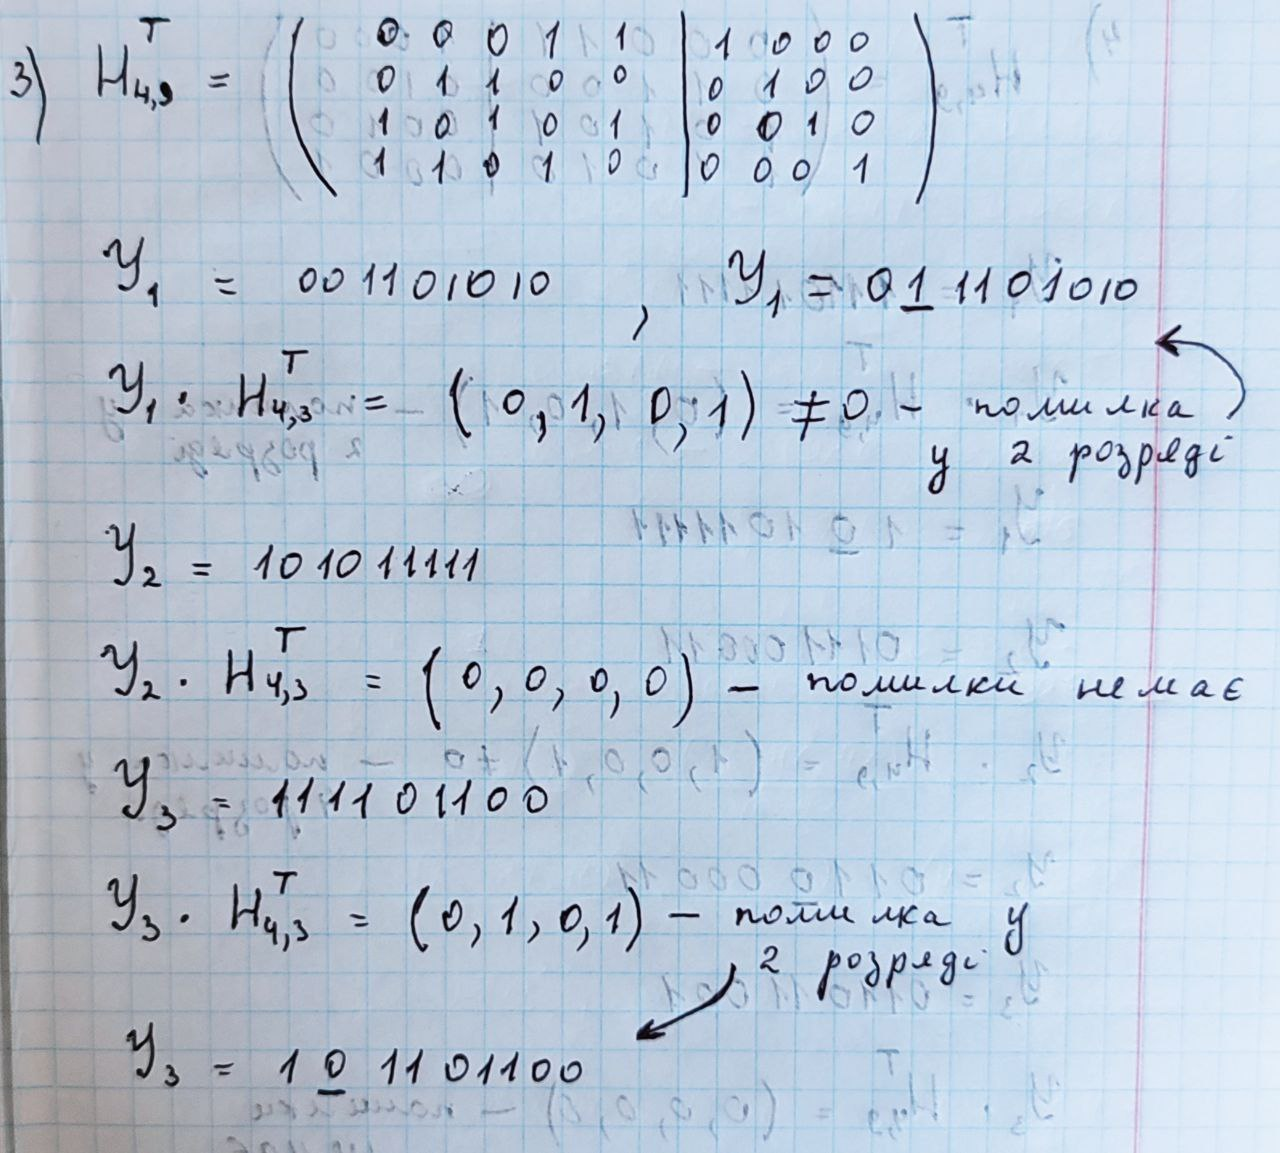 3) H₄,₉ᵀ =
( 0 0 0 1 1 | 1 0 0 0 )
( 0 1 1 0 0 | 0 1 0 0 )
( 1 0 1 0 1 | 0 0 1 0 )
( 1 1 0 1 0 | 0 0 0 1 )
У₁ = 001101010 , У₁ = 011101010
У₁ · H₄,₃ᵀ = (0,1,0,1) ≠ 0 - помилка
у 2 розряді
У₂ = 101011111
У₂ · H₄,₃ᵀ = (0,0,0,0) – помилки немає
У₃ = 111101100
У₃ · H₄,₃ᵀ = (0,1,0,1) – помилка у
2 розряді
У₃ = 101101100